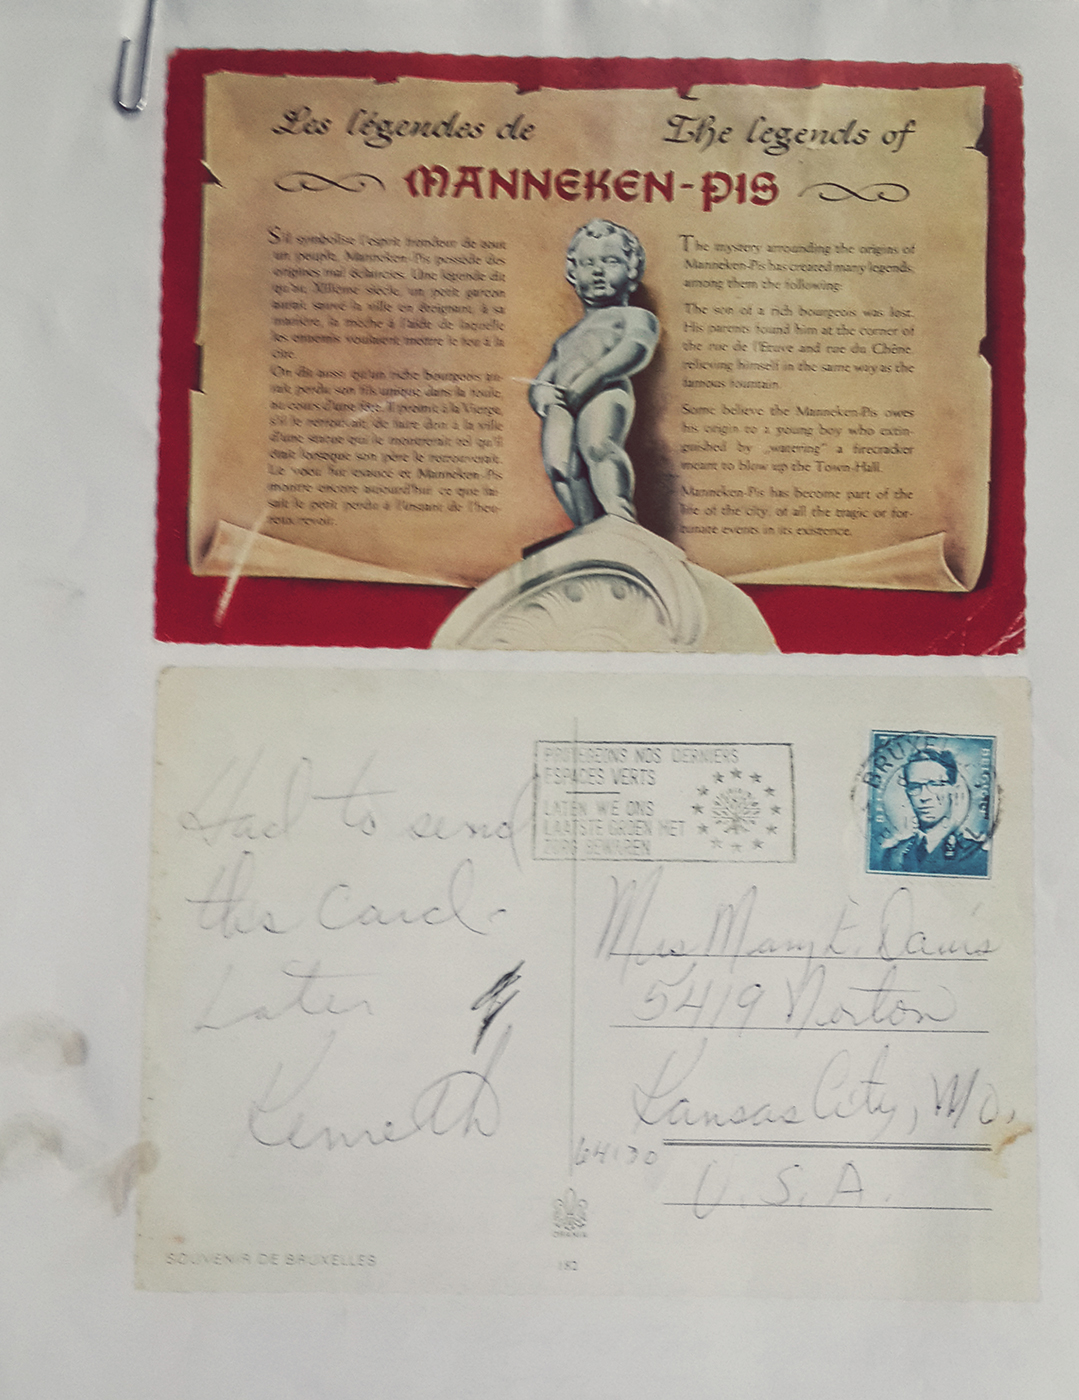 Les légendes de
The legends of
MANNEKEN-PIS
S'il symbolise l'esprit frondeur de tout
un peuple, Manneken-Pis possède des
origines mal éclaircies. Une légende dit
qu'au XIIIème siècle, un petit garçon
aurait sauvé la ville en éteignant, à sa
manière, la mèche à l'aide de laquelle
les ennemis voulaient mettre le feu à la
cité.
On dit aussi qu'un riche bourgeois au-
rait perdu son fils unique dans la foule,
au cours d'une fête. Il promit à la Vierge,
s'il le retrouvait, de faire don à la ville
d'une statue qui le montrerait tel qu'il
était lorsque son père le retrouverait.
Le voeu fut exaucé et Manneken-Pis
montre encore aujourd'hui ce que fai-
sait le petit perdu à l'instant de l'heu-
reux revoir.
The mystery arrounding the origins of
Manneken-Pis has created many legends;
among them the following:
The son of a rich bourgeois was lost.
His parents found him at the corner of
the rue de l'Etuve and rue du Chêne,
relieving himself in the same way as the
famous fountain.
Some believe the Manneken-Pis owes
his origin to a young boy who extin-
guished by „watering" a firecracker
meant to blow up the Town-Hall.
Manneken-Pis has become part of the
life of the city, of all the tragic or for-
tunate events in its existence.
PROTEGEONS NOS DERNIERS
ESPACES VERTS
LATEN WE ONS
LAATSTE GROEN MET
ZORG BEWAREN
BRUXEL
Had to send
this Card -
Later
Kenneth
Mrs Mary E. Davis
5419 Norton
Kansas City, Mo.
64130
U.S.A.
SOUVENIR DE BRUXELLES
182